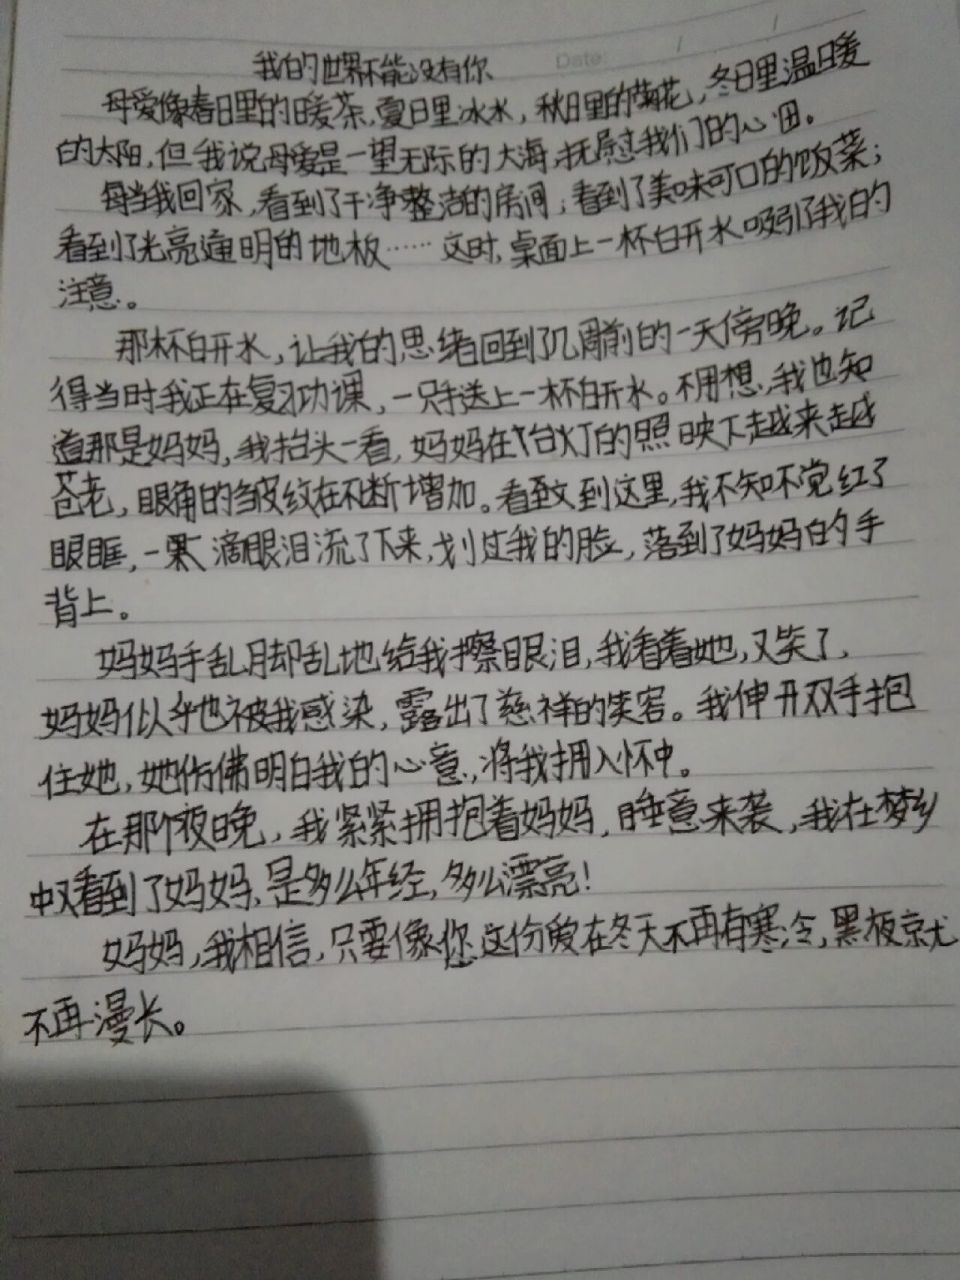 我的世界不能没有你
Date: / /
母爱像春日里的暖茶,夏日里冰水,秋日里的菊花,冬日里温暖
的太阳,但我说母爱是一望无际的大海,抚慰过我们的心田。
每当我回家,看到了干净整洁的房间;看到了美味可口的饭菜;
看到了光亮透明的地板……这时,桌面上一杯白开水吸引了我的
注意。
那杯白开水,让我的思绪回到了几周前的一天傍晚。记
得当时我正在复习功课,一只手送上一杯白开水。不用想,我也知
道那是妈妈,我抬头一看,妈妈在台灯的照映下越来越
苍老,眼角的皱纹在不断增加。看到这里,我不知不觉红了
眼眶,一滴眼泪流了下来,划过我的脸,落到了妈妈的手
背上。
妈妈手乱脚乱地给我擦眼泪,我看着她,又笑了,
妈妈似乎也被我感染,露出了慈祥的笑容。我伸开双手抱
住她,她仿佛明白我的心意,将我拥入怀中。
在那个夜晚,我紧紧拥抱着妈妈,睡意来袭,我在梦乡
中又看到了妈妈,是多么年轻,多么漂亮!
妈妈,我相信,只要像你这份爱在冬天不再有寒冷,黑夜就
不再漫长。